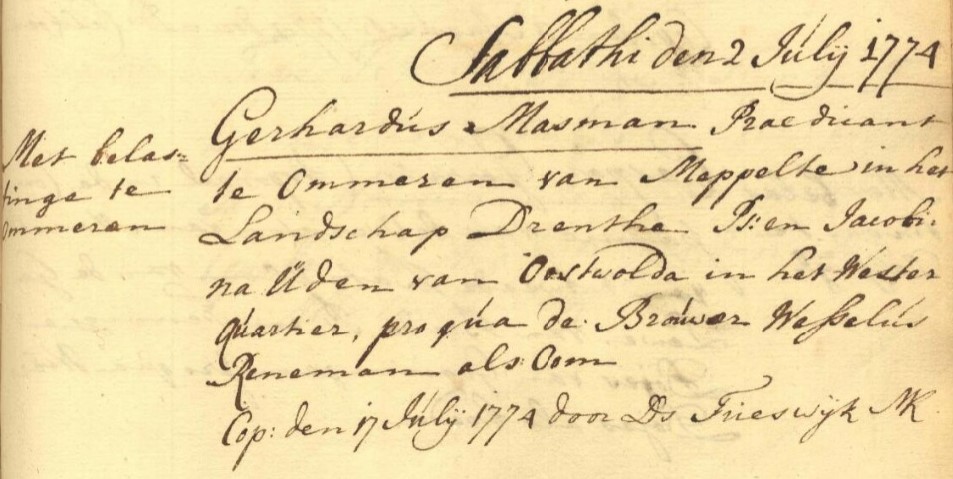 Sabbathi den 2 Julÿ 1774
Met belas=
tinge te
Ommeren
Gerhardús Masman Praedicant
te Ommeren van Meppelte in het
Landschap Drenthe Ps: en Jacobi-
na Uden van Oostwolda in het Wester
Qúartier, pro qúa de Broúwer Wesselús
Reneman als Oom
Cop: den 17 Júlÿ 1774 door Ds Frieswÿk NK